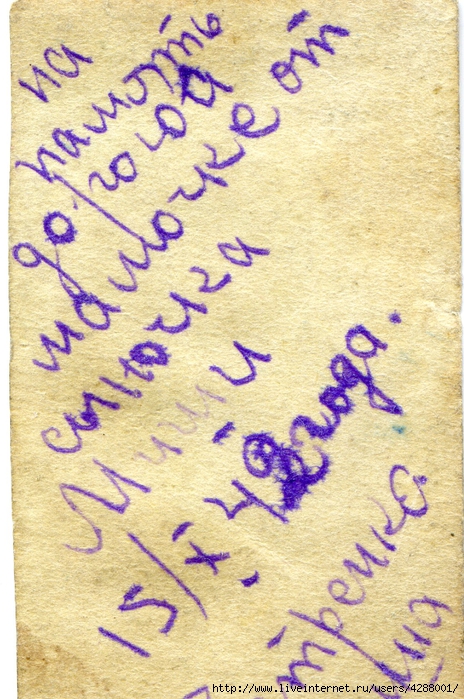 на
памють
дорогой
мамочке от
сыночка
Миши
15/X 42 года.
http://www.liveinternet.ru/users/4288001/